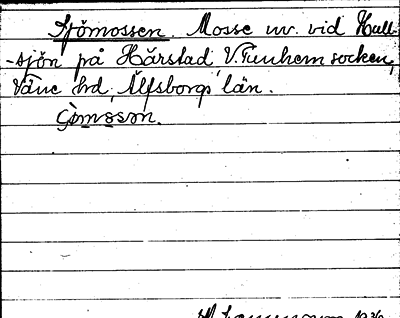 Sjömossen. Mosse nv. vid Hull-
-sjön på Hårstad V. Tunhem socken,
Väne hd, Älfsborgs län.
çömosən.